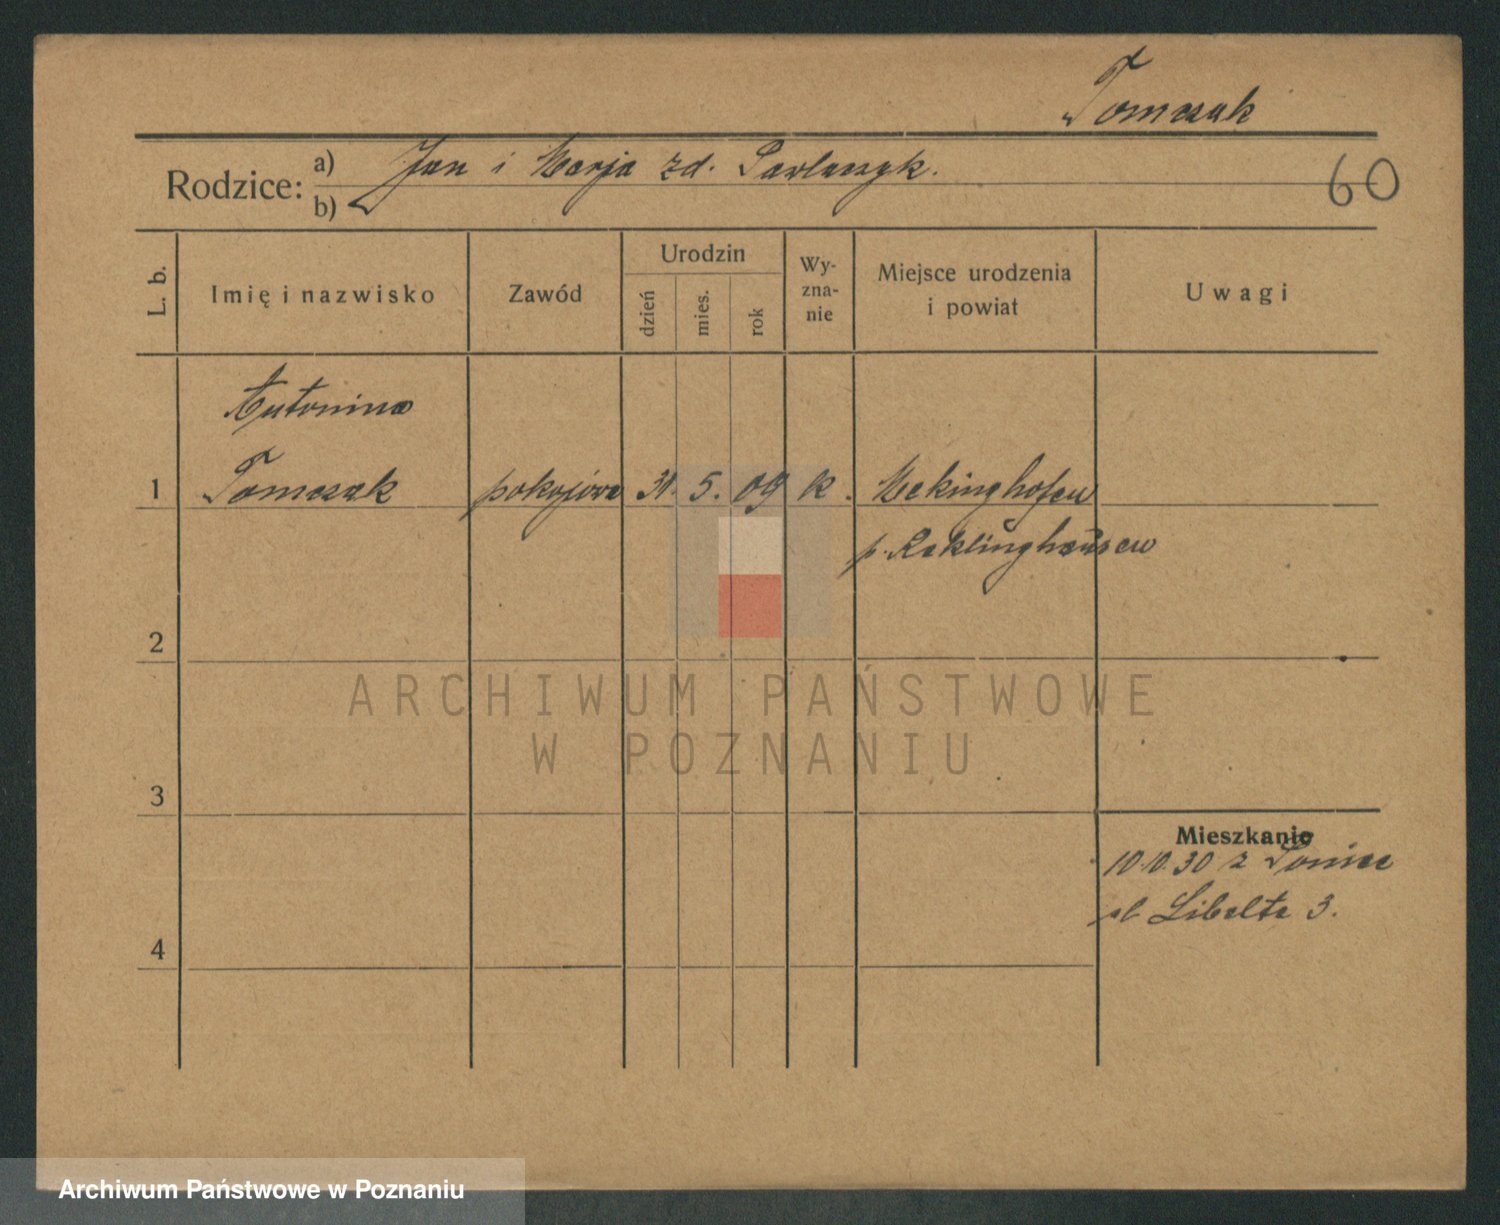 Tomczak
Rodzice: a) Jan i Marja zd. Pawlaczyk.
b)
60
L. b.
Imię i nazwisko
Zawód
Urodzin
dzień
mies.
rok
Wy-
zna-
nie
Miejsce urodzenia
i powiat
Uwagi
Antonina
1 Tomczak pokojowa 31. 5. 09 k. Mekinghofen
p. Reklinghausen
2
ARCHIWUM PAŃSTWOWE
W POZNANIU
3
Mieszkanie
10.10.30 z Poniec
ul Libelta 3.
4
Archiwum Państwowe w Poznaniu